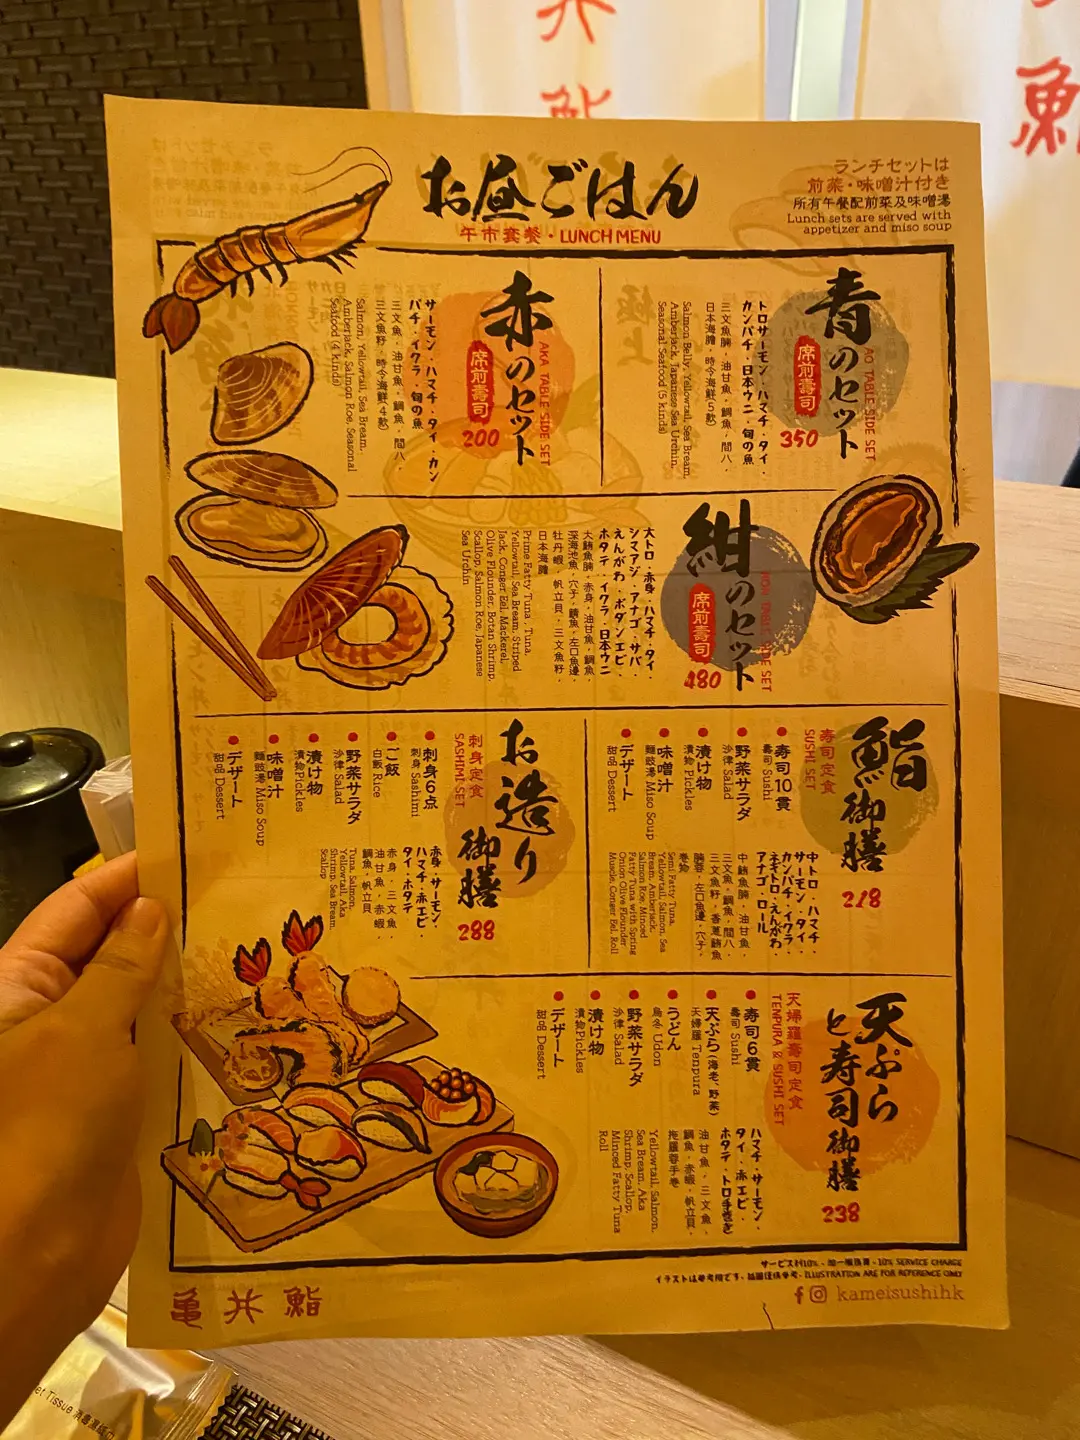 お昼ごはん
午市套餐・LUNCH MENU
ランチセットは
前菜・味噌汁付き
所有午餐配前菜及味噌湯
Lunch sets are served with
appetizer and miso soup
青のセット
AO TABLE SIDE SET
席前壽司
350
トロサーモン・ハマチ・タイ・
カンパチ・日本ウニ・旬の魚
三文魚腩・油甘魚・鯛魚・間八・
日本海膽・時令海鮮(5款)
Salmon Belly, Yellowtail, Sea Bream,
Amberjack, Japanese Sea Urchin,
Seasonal Seafood (5 kinds)
赤のセット
AKA TABLE SIDE SET
席前壽司
200
サーモン・ハマチ・タイ・カン
パチ・イクラ・旬の魚
三文魚・油甘魚・鯛魚・間八・
三文魚籽・時令海鮮(4款)
Salmon, Yellowtail, Sea Bream,
Amberjack, Salmon Roe, Seasonal
Seafood (4 kinds)
紺のセット
TABLE SIDE SET
席前壽司
480
大トロ・赤身・ハマチ・タイ・
シマアジ・アナゴ・サバ・
えんがわ・ボタンエビ・
ホタテ・イクラ・日本ウニ
大鮪魚腩・赤身・油甘魚・鯛魚・
深海池魚・穴子・鯖魚・左口魚邊・
牡丹蝦・帆立貝・三文魚籽・
日本海膽
Prime Fatty Tuna, Tuna,
Yellowtail, Sea Bream, Striped
Jack, Conger Eel, Mackerel,
Olive Flounder, Botan Shrimp,
Scallop, Salmon Roe, Japanese
Sea Urchin
鮨御膳
寿司定食
SUSHI SET
218
寿司10貫
壽司 Sushi
野菜サラダ
沙律 Salad
漬け物
漬物 Pickles
味噌汁
麵豉湯 Miso Soup
デザート
甜品 Dessert
中トロ・ハマチ・
サーモン・タイ・
カンパチ・イクラ・
ネギトロ・えんがわ・
アナゴ・ロール
中鮪魚腩・油甘魚・
三文魚・鯛魚・間八・
三文魚籽・香蔥鮪魚
左口魚邊・穴子・
Semi Fatty Tuna,
Yellowtail, Salmon, Sea
Bream, Amberjack,
Salmon Roe, Minced
Fatty Tuna with Spring
Onion Olive Flounder
Muscle, Conger Eel, Roll
お造り御膳
刺身定食
SASHIMI SET
288
刺身6点
刺身 Sashimi
ご飯
白飯 Rice
野菜サラダ
沙律 Salad
漬け物
漬物 Pickles
味噌汁
麵豉湯 Miso Soup
デザート
甜品 Dessert
赤身・サーモン・
ハマチ・赤エビ・
タイ・ホタテ
赤身・三文魚・
油甘魚・赤蝦・
鯛魚・帆立貝
Tuna, Salmon,
Yellowtail, Aka
Shrimp, Sea Bream,
Scallop
天ぷらと寿司御膳
天婦羅壽司定食
TEMPURA & SUSHI SET
238
寿司6貫
壽司 Sushi
天ぷら(海老、野菜)
天婦羅 Tenpura
うどん
烏冬 Udon
野菜サラダ
沙律 Salad
漬け物
漬物 Pickles
デザート
甜品 Dessert
ハマチ・サーモン・
タイ・赤エビ・
ホタテ・トロ手巻き
油甘魚・三文魚・
鯛魚・赤蝦・帆立貝・
拖羅蓉手卷
Yellowtail, Salmon,
Sea Bream, Aka
Shrimp, Scallop,
Minced Fatty Tuna
Roll
サービス料10%・加一服務費・10% SERVICE CHARGE
イラストは参考用です・插圖僅供參考・ILLUSTRATION ARE FOR REFERENCE ONLY
kameisushihk
亀井鮨